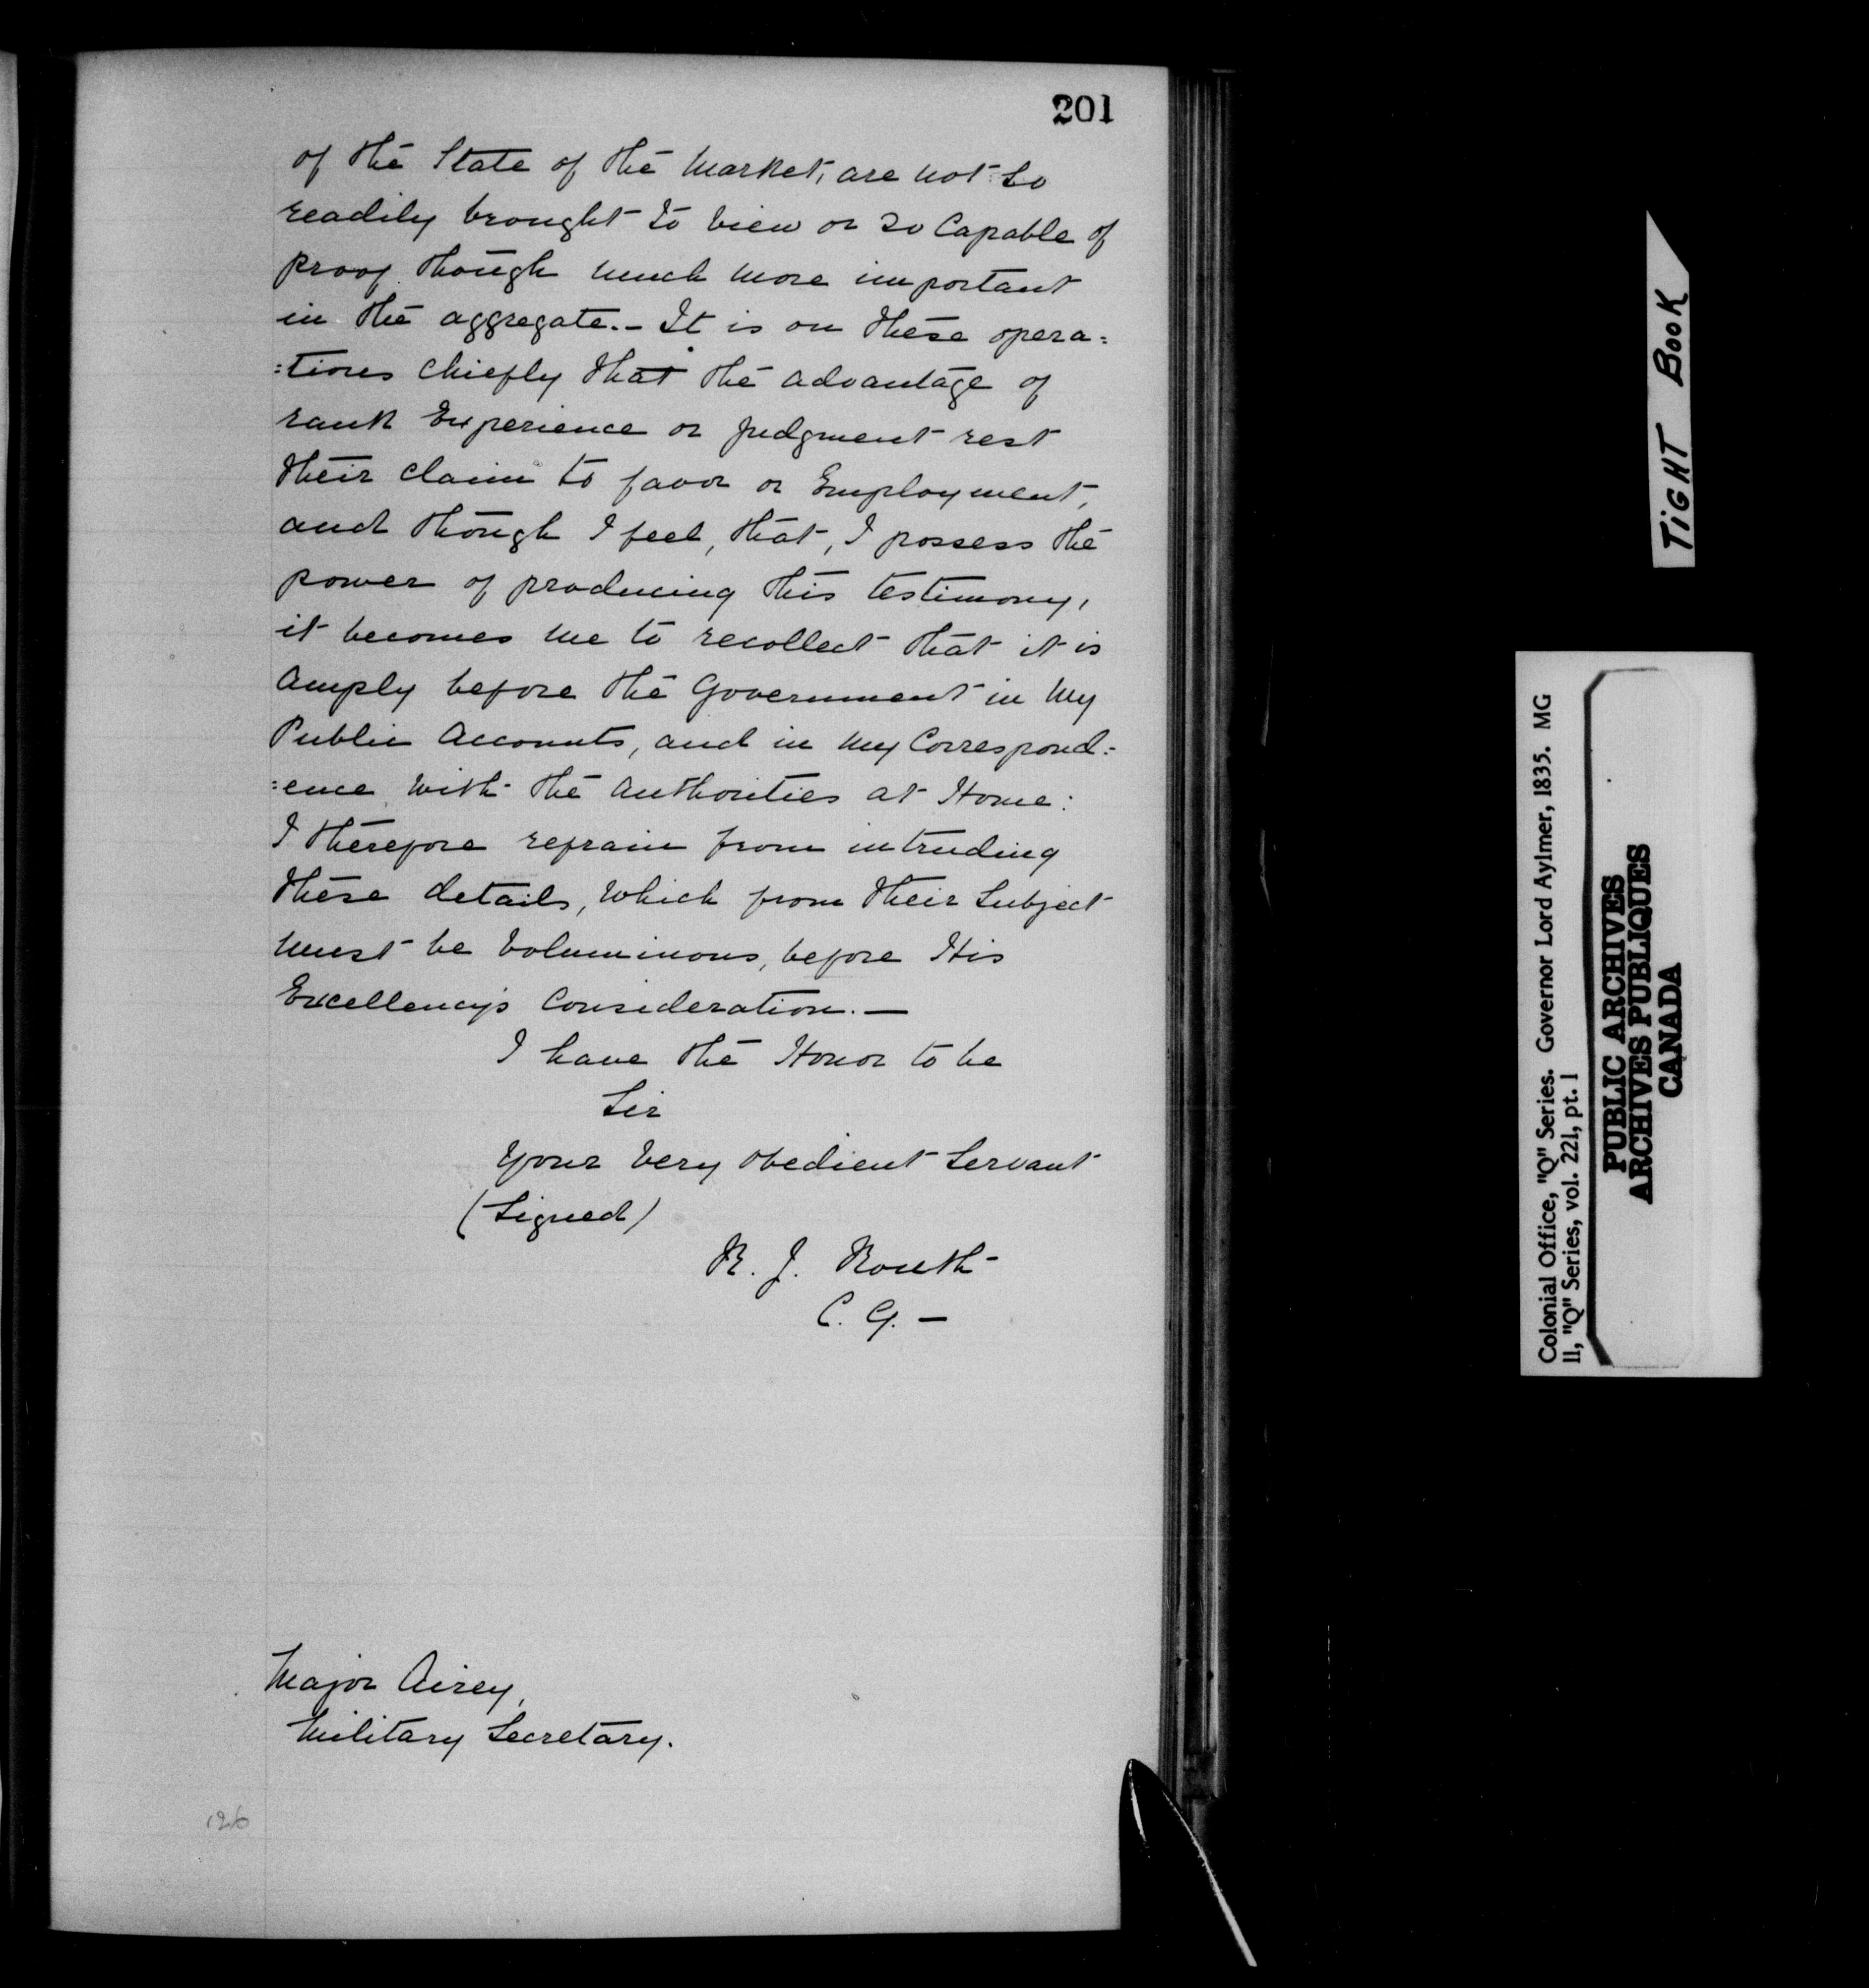 201
of the State of the Market, are not so
readily brought to view or so Capable of
proof though much more important
in the aggregate.- It is on these opera=
=tions chiefly that the advantage of
rank Experience or Judgment rest
their claim to favor or Employment,
and though I feel, that, I possess the
power of producing this testimony,
it becomes me to recollect that it is
Amply before the Government in my
Public Accounts, and in my Correspond=
=ence with the Authorities at Home:
I therefore refrain from intruding
these details, which from their Subject
must be voluminous, before His
Excellency's Consideration.—
I have the Honor to be
Sir
Your Very Obedient Servant
(Signed)
R. J. Routh
C. G. —
Major Airey,
Military Secretary.
126
TIGHT BOOK
Colonial Office, "Q" Series. Governor Lord Aylmer, 1835. MG
11, "Q" Series, vol. 221, pt. 1
PUBLIC ARCHIVES
ARCHIVES PUBLIQUES
CANADA